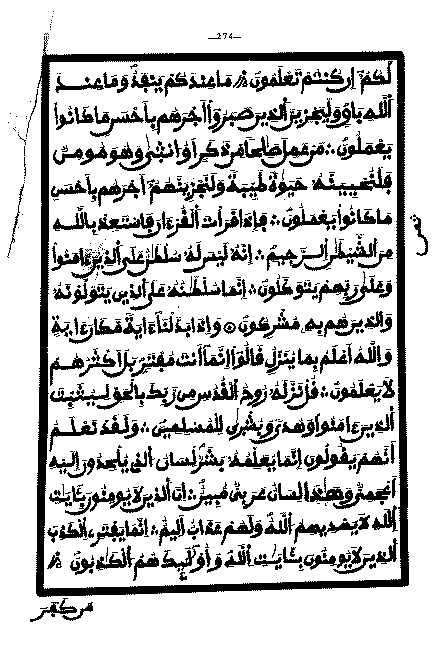 —274—
لَكُمْ إِن كُنتُمْ تَعْلَمُونَ ∴ مَا عِندَكُمْ يَنفَدُ وَمَا عِندَ
ٱللَّهِ بَاقٍ وَلَيَجْزِيَنَّ ٱلَّذِينَ صَبَرُوٓا۟ أَجْرَهُم بِأَحْسَنِ مَا كَانُوا۟
يَعْمَلُونَ ∴ مَنْ عَمِلَ صَٰلِحًا مِّن ذَكَرٍ أَوْ أُنثَىٰ وَهُوَ مُومِنٌ
فَلَنُحْيِيَنَّهُۥ حَيَوٰةً طَيِّبَةً وَلَنَجْزِيَنَّهُمْ أَجْرَهُم بِأَحْسَنِ
مَا كَانُوا۟ يَعْمَلُونَ ∴ فَإِذَا قَرَأْتَ ٱلْقُرْءَانَ فَٱسْتَعِذْ بِٱللَّهِ
مِنَ ٱلشَّيْطَٰنِ ٱلرَّجِيمِ ∴ إِنَّهُۥ لَيْسَ لَهُۥ سُلْطَٰنٌ عَلَى ٱلَّذِينَ ءَامَنُوا۟
وَعَلَىٰ رَبِّهِمْ يَتَوَكَّلُونَ ∴ إِنَّمَا سُلْطَٰنُهُۥ عَلَى ٱلَّذِينَ يَتَوَلَّوْنَهُۥ
وَٱلَّذِينَ هُم بِهِۦ مُشْرِكُونَ ⊙ وَإِذَا بَدَّلْنَآ ءَايَةً مَّكَانَ ءَايَةٍ
وَٱللَّهُ أَعْلَمُ بِمَا يُنَزِّلُ قَالُوٓا۟ إِنَّمَآ أَنتَ مُفْتَرٍ بَلْ أَكْثَرُهُمْ
لَا يَعْلَمُونَ ∴ قُلْ نَزَّلَهُۥ رُوحُ ٱلْقُدُسِ مِن رَّبِّكَ بِٱلْحَقِّ لِيُثَبِّتَ
ٱلَّذِينَ ءَامَنُوا۟ وَهُدًى وَبُشْرَىٰ لِلْمُسْلِمِينَ ∴ وَلَقَدْ نَعْلَمُ
أَنَّهُمْ يَقُولُونَ إِنَّمَا يُعَلِّمُهُۥ بَشَرٌ لِّسَانُ ٱلَّذِى يُلْحِدُونَ إِلَيْهِ
أَعْجَمِىٌّ وَهَٰذَا لِسَانٌ عَرَبِىٌّ مُّبِينٌ ∴ إِنَّ ٱلَّذِينَ لَا يُومِنُونَ بِـَٔايَٰتِ
ٱللَّهِ لَا يَهْدِيهِمُ ٱللَّهُ وَلَهُمْ عَذَابٌ أَلِيمٌ ∴ إِنَّمَا يَفْتَرِى ٱلْكَذِبَ
ٱلَّذِينَ لَا يُومِنُونَ بِـَٔايَٰتِ ٱللَّهِ وَأُو۟لَٰٓئِكَ هُمُ ٱلْكَٰذِبُونَ ∴
مَن كَفَرَ
ثمن